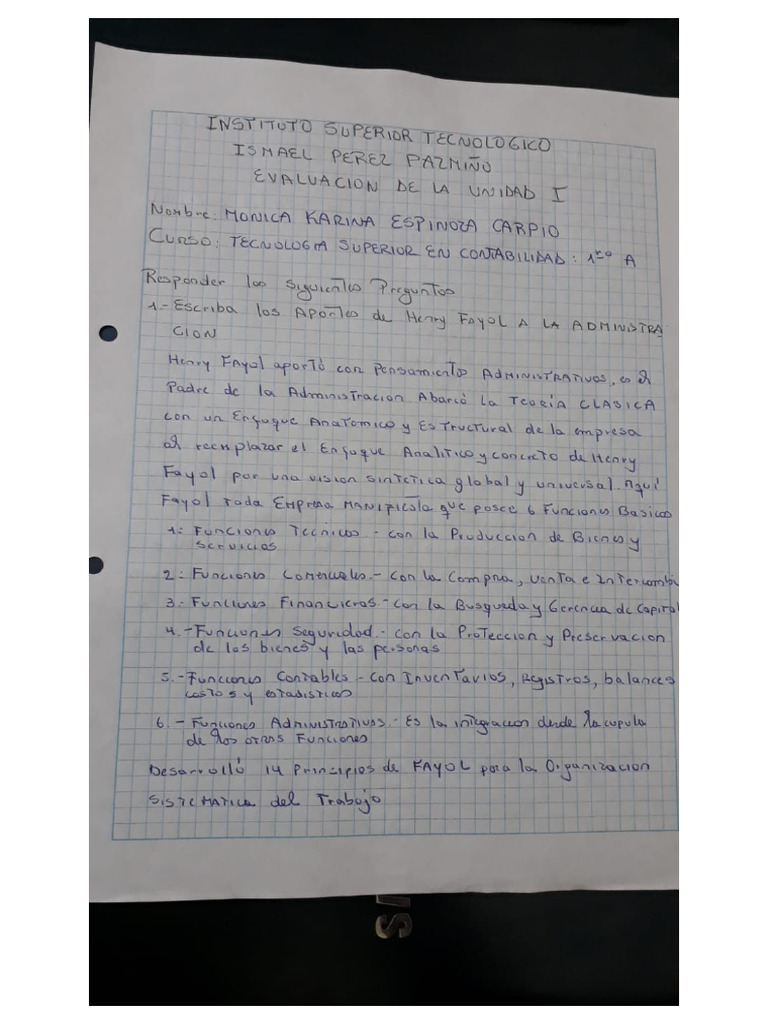 INSTITUTO SUPERIOR TECNOLOGICO
ISMAEL PEREZ PAZMIÑO
EVALUACION DE LA UNIDAD I
Nombre: MONICA KARINA ESPINOZA CARPIO
Curso: TECNOLOGIA SUPERIOR EN CONTABILIDAD: 1ero A
Responder las Siguientes Preguntas
1.- Escriba los Aportes de Henry FAYOL A LA ADMINISTRA
CION
Henry FAyol aportó con Pensamientos ADMINISTRATIVOS, es el
Padre de la Administracion Abarcó la TEORIA CLASICA
con un Enfoque Anatomico y Estructural de la empresa
al reemplazar el Enfoque Analitico y concreto de Henry
Fayol por una vision sintetica global y universal. Aqui
Fayol toda Empresa que posee 6 Funciones Basicas
1: Funciones Tecnicos - con la Produccion de Bienes y
servicios
2: Funciones Comerciales - con la Compra, venta e Intercambi
3.- Funciones Financieros - con la Busqueda y Gerencia de Capital
4.- Funciones Seguridad - con la Proteccion y Preservacion
de los bienes y las personas
5.- Funciones Contables - con Inventarios, Registros, balances
costos y estadisticos
6.- Funciones Administrativas - Es la integracion desde la cupula
de los otras Funciones
Desarrolló 14 Principios de FAYOL para la Organizacion
SISTEMATICA del Trabajo